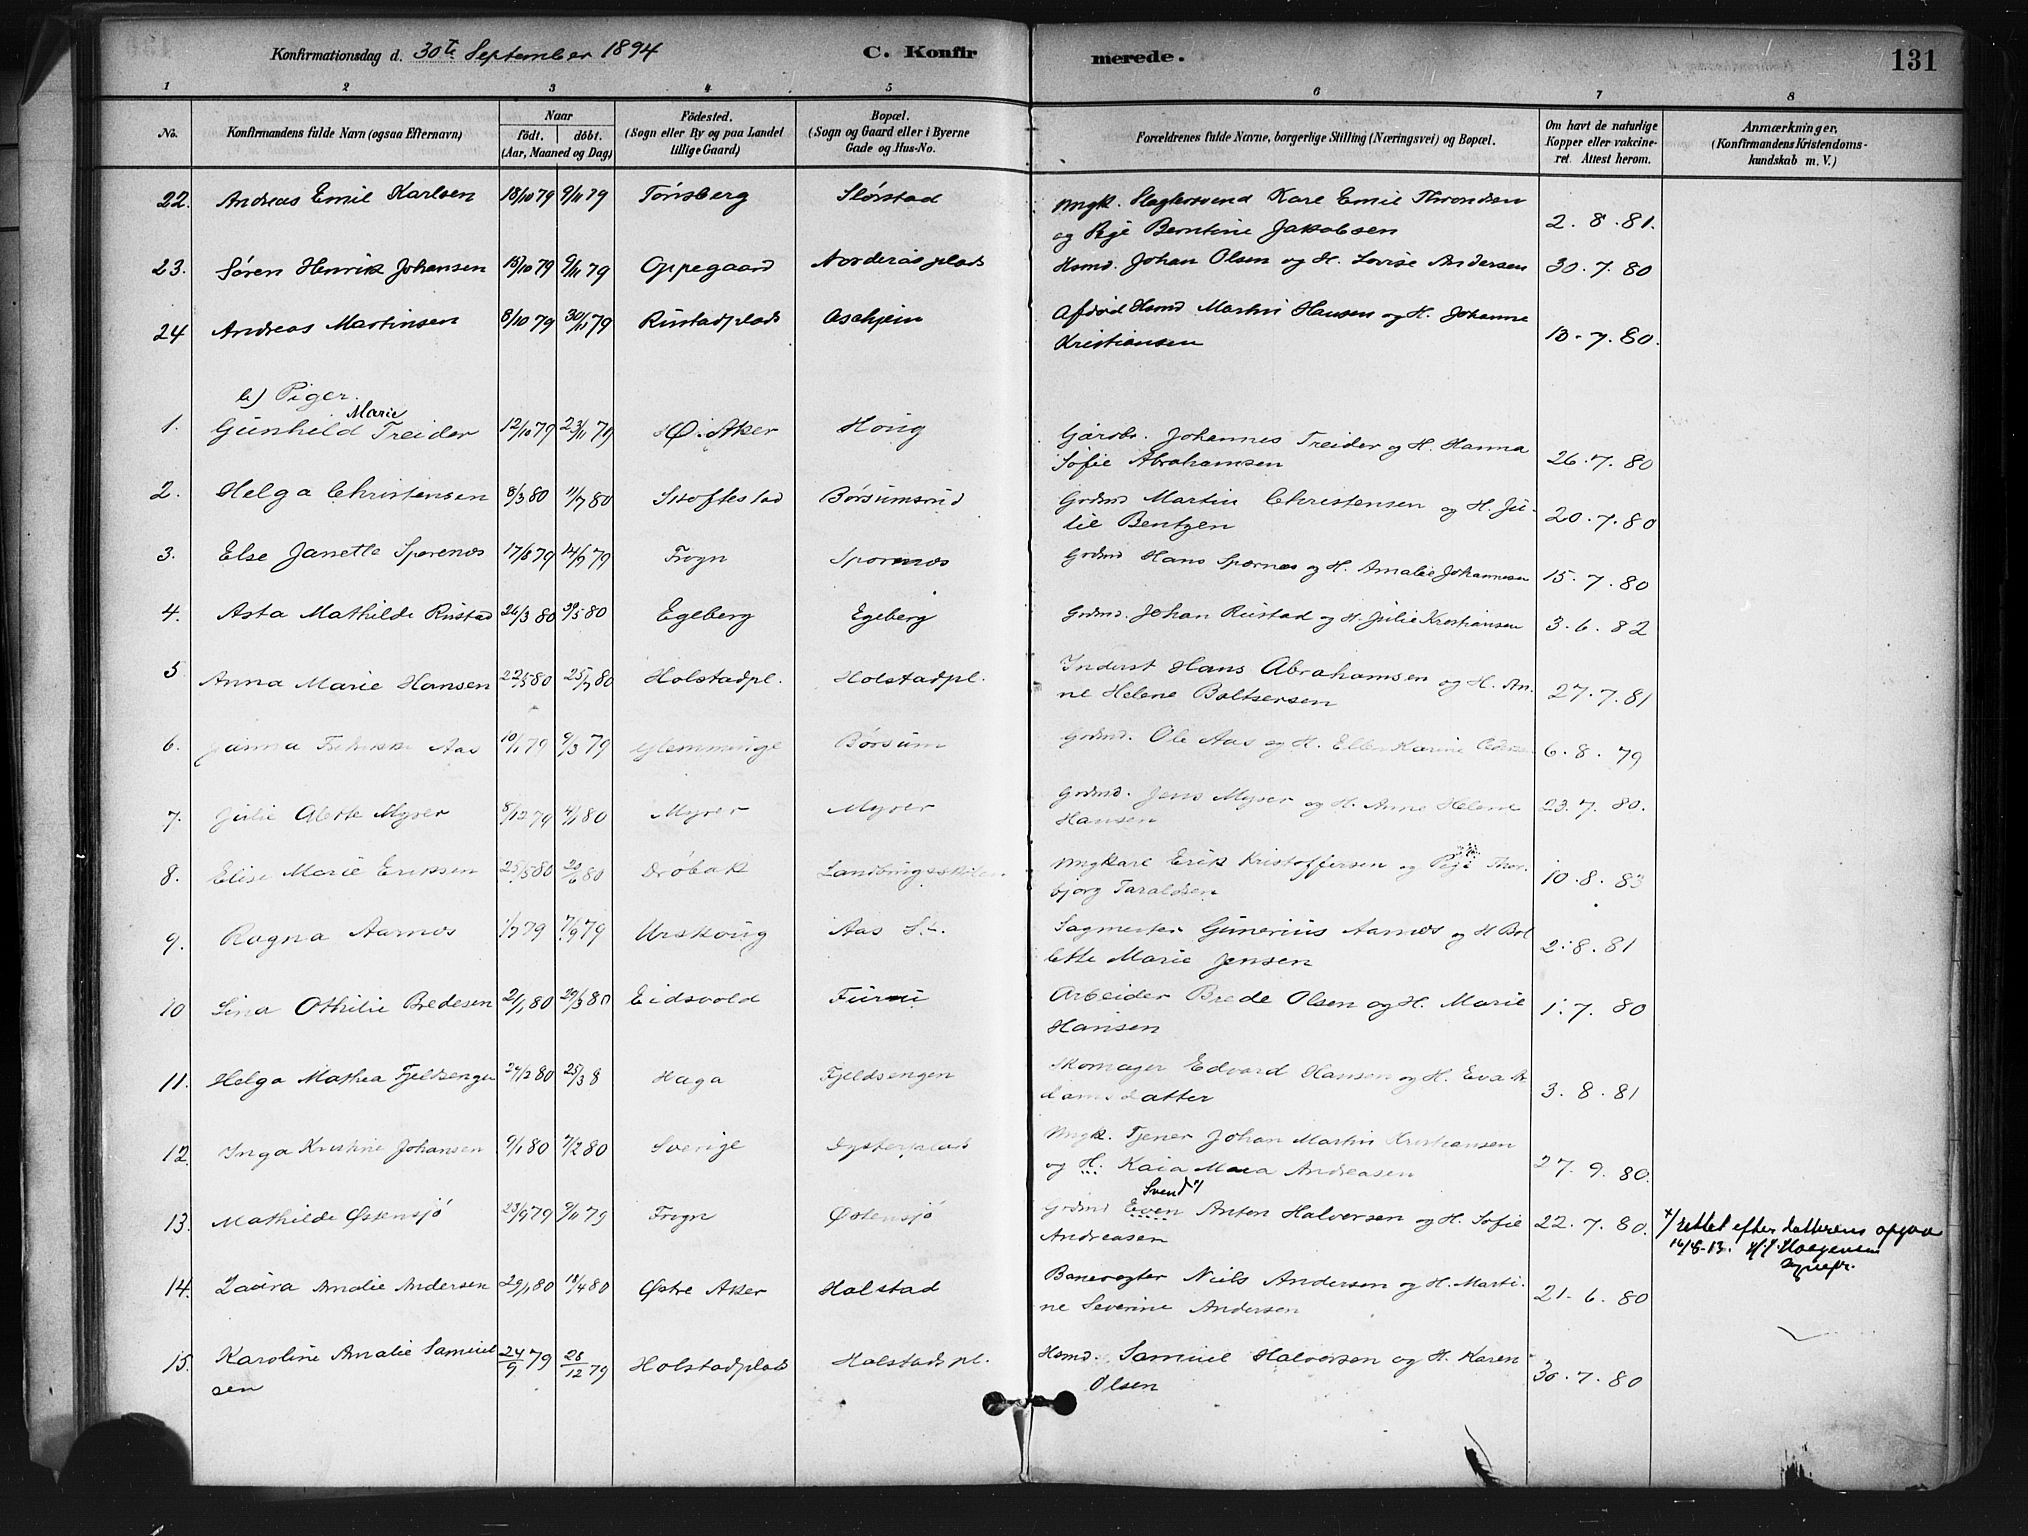 Konfirmationsdag d. 30te September 1894 C. Konfirmerede. 131
1 2 3 4 5 6 7 8
No. Konfirmandens fulde Navn (ogsaa Efternavn) Naar født. døbt. (Aar, Maaned og Dag) Födested. (Sogn eller By og paa Landet tillige Gaard) Bopæl. (Sogn og Gaard eller i Byerne Gade og Hus-No. Forældrenes fulde Navne, borgerlige Stilling (Næringsvei) og Bopæl. Om havt de naturlige Kopper eller vakcineret. Attest herom. Anmærkninger, (Konfirmandens Kristendomskundskab m. V.)
22. Andreas Emil Karlsen 18/10 79 9/11 79 Tønsberg Slørstad Ungk. Slagtersvend Karl Emil Throndsen
og Pige Berntine Jakobsen 2.8.81.
23. Søren Henrik Johansen 15/10 79 9/11 79 Oppegaard Norderaasplads Hsmd. Johan Olsen og H. Lovise Andersen 30.7.80
24 Andreas Martinsen 8/10 79 30/11 79 Rustadplads Askjein Afdød Hsmd Martin Hansen og H. Johanne
Kristiansen 10.7.80.
b) Piger.
Marie
1. Gunhild Treider 12/10 79 23/11 79 Ø. Aker Houg Gårdbr. Johannes Treider og H. Hanna
Sofie Abrahamsen 26.7.80
2. Helga Christensen 8/3 80 11/7 80 Skoftestad Børsumsrud Grdmd Martin Christensen og H. Ju-
lie Bentzen 20.7.80
3. Else Janette Spornæs 17/6 79 14/9 79 Frogn Spornæs Grdmd Hans Spornæs og H. Amalie Johannesen 15.7.80
4. Asta Mathilde Rustad 26/3 80 30/5 80 Egeberg Egeberg Grdmd. Johan Rustad og H. Julie Kristiansen 3.6.82
5 Anna Marie Hansen 22/5 80 25/7 80 Holstadpl. Holstadpl. Inderst Hans Abrahamsen og H. An-
ne Helene Baltsersen 27.7.81
6. Janna Aas 10/1 79 9/3 79 Glemminge Børsum Grdmd. Ole Aas og H. Ellen Karine Pedersen 6.8.79
7. Julie Alette Myrer 8/12 79 4/1 80 Myrer Myrer Grdmd. Jens Myrer og H. Anne Helene
Hansen 23.7.80.
8. Elise Marie Eriksen 25/5 80 20/6 80 Drøbak Ungkarl Erik Kristoffersen og Pige Thor-
bjørg Taraldsen 10.8.83
9. Ragna Aarnæs 1/7 79 7/9 79 Urskoug Aas St. Sagmester Gunerius Aarnæs og H Bol
lette Marie Jensen 2.8.81
10 Lina Othilie Bredesen 21/1 80 30/3 80 Eidsvold Furui Arbeider Brede Olsen og H. Marie
Hansen 1.7.80
11. Helga Mathea Fjeldsengen 24/2 80 25/3 8 Haga Fjeldsengen Skomager Edvard Hansen og H. Eva A-
damsdatter 3.8.81
12. Inga Kristine Johansen 9/1 80 7/2 80 Sverige Dysterplads Ungk. Tjener Johan Martin Kristiansen
og H. Kaia Maria Andreasen 27.9.80.
Svend x/
13. Mathilde Østensjø 23/9 79 9/11 79 Frogn Østensjø Grdmd Even Anton Halversen og H. Sofie
Andreasen 22.7.80. x/ rettet efter datterens opgave
16/8-13.
14. Laura Amalie Andersen 29/1 80 18/4 80 Østre Aker Holstad Banevogter Niels Andersen og H. Marti-
ne Severine Andersen 21.6.80
15. Karoline Amalie Samuel 24/9 79 28/12 79 Holstadplads Holstadspl. Hsmd. Samuel Halversen og H. Karen
sen Olsen 30.7.80